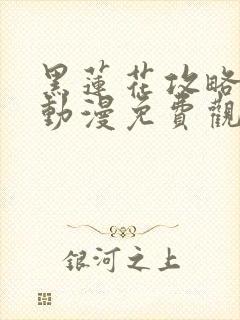 黑蓮花攻略
動漫免費觀
銀河之上